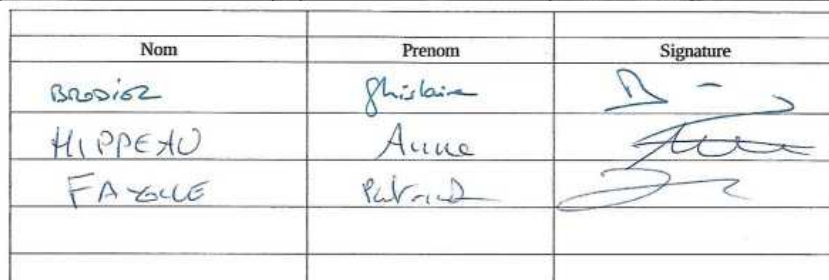 Nom Prenom Signature
BRODIER Ghislaine
HIPPEAU Anne
FAYOLLE Patrick